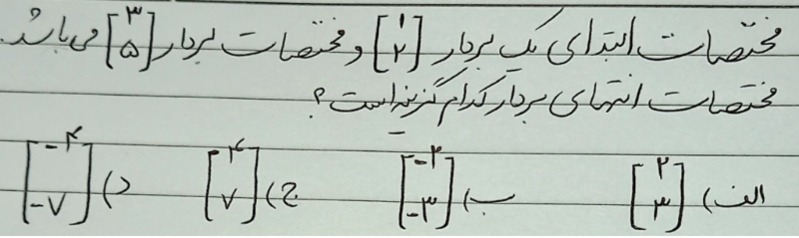 مختصات ابتدای یک بردار [۱ ۲] و مختصات بردار [۳ ۵] می باشد.
مختصات انتهای بردار کدام گزینه است؟
الف) [۲ ۳] ب) [-۲ -۳] ج) [۴ ۷] د) [-۴ -۷]